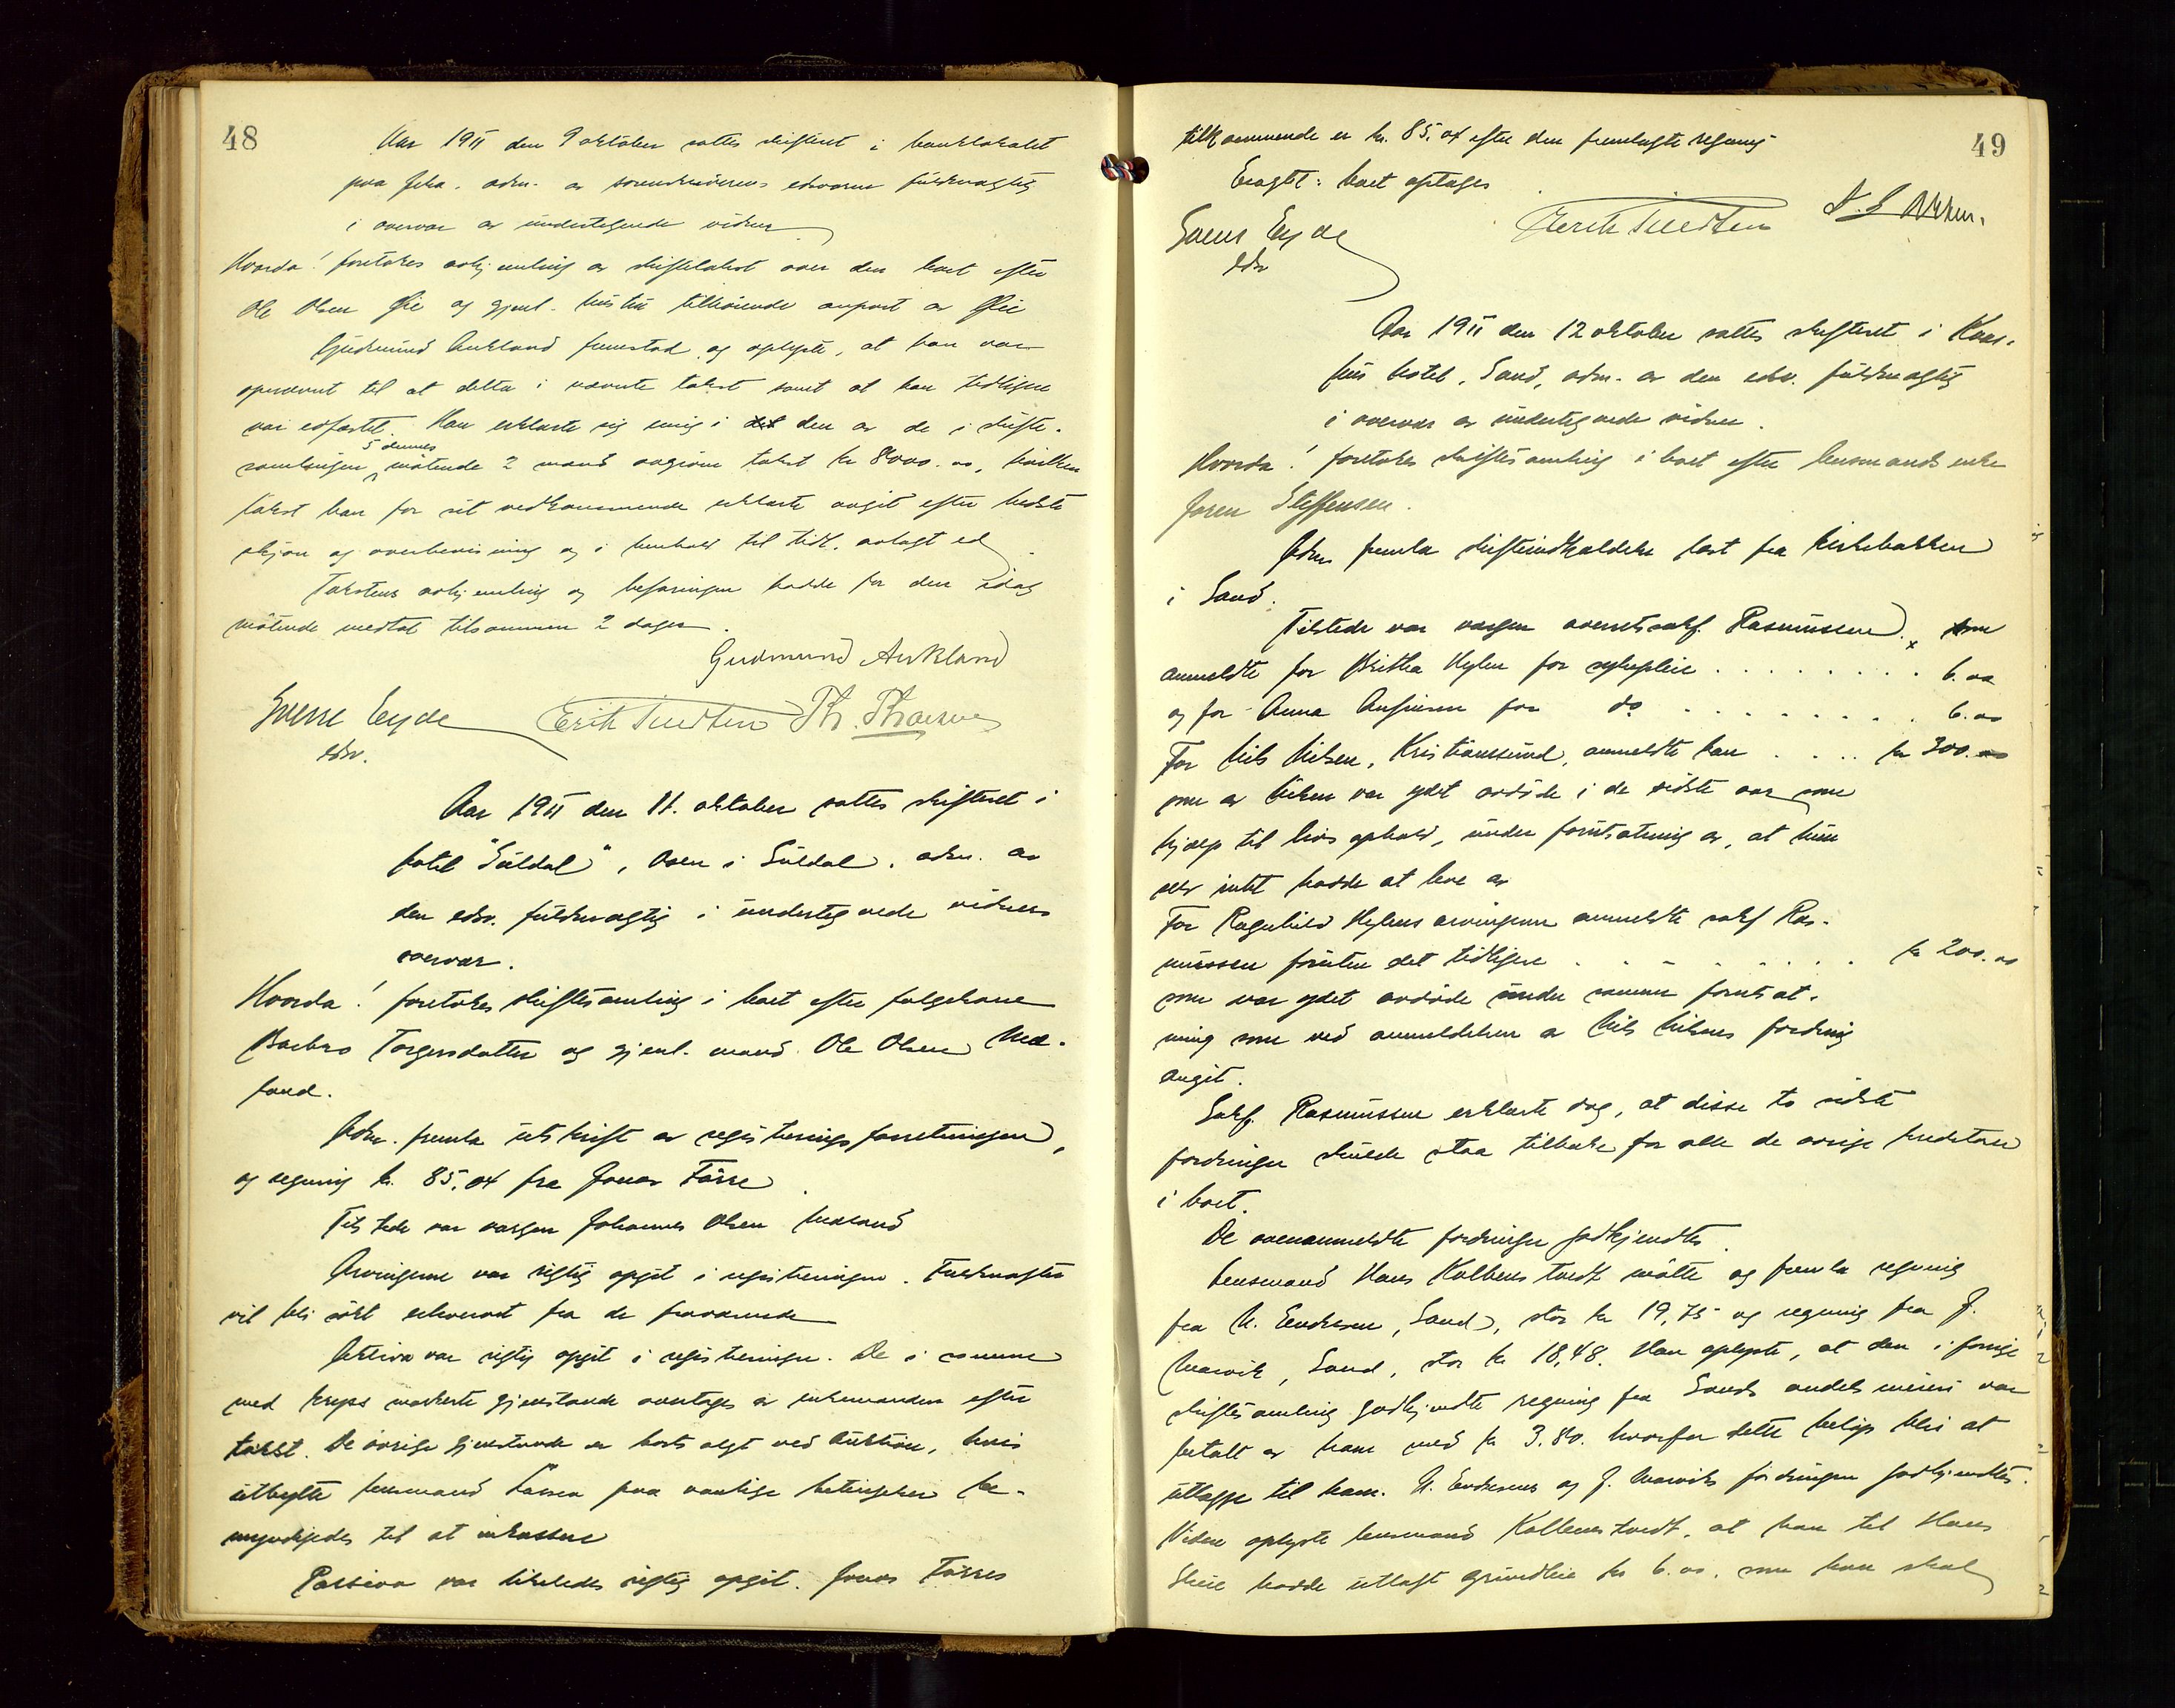 48
Aar 1911 den 9 oktober sattes skifteret i banklokalet
paa Jelsa. adm. av sorenskriverens edsvorne fuldmægtig
i overvær av undertegnede vidner
Hvorda! foretokes avhjemling av skiftetakst over den boet efter
Ole Olsen Øie og gjenl. hustru tilhørende anpart av Øie
Gudmund Aukland fremstod og oplyste, at han var
opnævnt til at delta i nævnte takst samt at han tidligere
var edfæstet. Han erklærte sig enig i den av de i skifte-
samlingen 5 dennes møtende 2 mænd avgivne takst kr 8000.00, hvilken
takst han for sit vedkommende erklærte avgit efter bedste
skjøn og overbevisning og i henhold til tidl. avlagt ed
Takstens avhjemling og befaringen hadde for den idag
møtende medtat tilsammen 2 dager.
Gudmund Aukland
Sverre Eyde
edsv.
Erik Tvedten Th. Thorsnes
Aar 1911 den 11. oktober sattes skifteret i
hotel "Suldal", Osen i Suldal. adm. av
den edsv. fuldmægtig i undertegnede vidners
overvær.
Hvorda! foretokes skiftesamling i boet efter følgekone
Barbro Torgersdatter og gjenl. mand Ole Olsen Næ-
sand.
Adm. fremla utskrift av registreringsforretningen,
og regning kr. 85.04 fra Jonas Førre
Tilstede var værgen Johannes Olsen Næsand
Arvingerne var rigtig opgit i registreringen. Fuldmagter
vil bli søkt erhvervet fra de fraværende
Aktiva var rigtig opgit i registreringen. De i samme
med kryss merkerte gjenstande overtages av enkemanden efter
takst. De øvrige gjenstande er bortsolgt ved auktion, hvis
utbytte lensmand Larsen paa vanlige betingelser be-
myndigedes til at inkassere
Passiva var likeledes rigtig opgit. Jonas Førres
49
tilkommende er kr. 85.04 efter den fremlagte regning
Eragtet: boet optages
Sverre Eyde
edsv
Erik Tvedten
Aar 1911 den 12 oktober sattes skifteret i Kaar-
hus hotel, Sand, adm. av den edsv. fuldmægtig
i overvær av undertegnede vidner.
Hvorda! foretokes skiftesamling i boet efter lensmandsenke
Joren Steffensen.
Adm fremla skifteindkaldelse læst fra kirkebakken
i Sand.
Tilstede var værgen overretssakf. Rasmussen, x som
anmeldte for Britha Hylen for sykepleie . . . . . . . . 6.00
og for Anna for do . . . . . . . . . 6.00
For Nils Nilsen, Kristianssund, anmeldte han . . . . kr 300.00
som av Nilsen var ydet avdøde i de sidste aar som
hjælp til livsophold, under forutsætning av, at hun
selv intet hadde at leve av
For Ragnhild Hylens arvingerne anmeldte sakf Ras-
mussen foruten det tidligere . . . . . . . . kr 200.00
som var ydet avdøde under samme forutsæt-
ning som ved anmeldelsen av Nils Nilsens fordring
angit.
Sakf. Rasmussen erklærte dog, at disse to sidste
fordringer skulde staa tilbake for alle de øvrige kreditorer
i boet.
De ovenanmeldte fordringer godkjendtes.
Lensmand Hans Kolbenstvedt møtte og fremla regning
fra N. Endresen, Sand, stor kr 19,75 og regning fra J.
Warvik, Sand, stor kr 18,48. Han oplyste, at den i forrige
skiftesamling godkjendte regning fra Sands andelsmeieri var
betalt av ham med kr 3.80. hvorfor dette beløp blir at
utlægge til ham. N. Endresens og J. Warviks fordringer godkjendtes.
Videre oplyste lensmand Kolbenstvedt, at han til Hans
Skeie hadde utlagt grundleie kr 6.00. som han skal